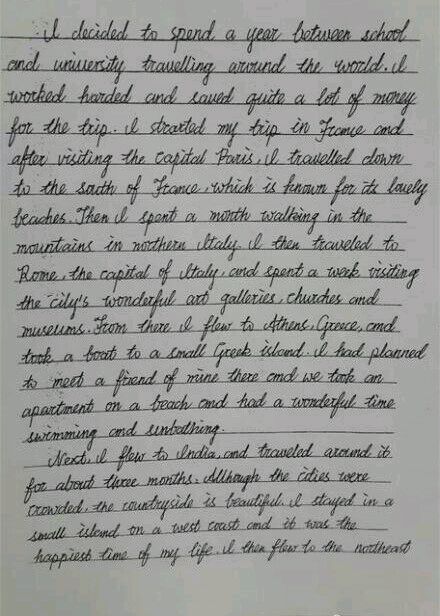 I decided to spend a year between school
and university travelling around the world. I
worked harded and saved quite a lot of money
for the trip. I strarted my trip in France and
after visiting the capital Paris, I travelled down
to the south of France, which is known for its lovely
beaches. Then I spent a month walking in the
mountains in northern Italy. I then traveled to
Rome, the capital of Italy, and spent a week visiting
the city's wonderful art galleries, churches and
museums. From there I flew to Athens, Greece, and
took a boat to a small Greek island. I had planned
to meet a friend of mine there and we took an
apartment on a beach and had a wonderful time
swimming and sunbathing.
Next, I flew to India, and traveled around it
for about three months. Although the cities were
crowded, the countryside is beautiful. I stayed in a
small island on a west coast and it was the
happiest time of my life. I then flew to the northeast